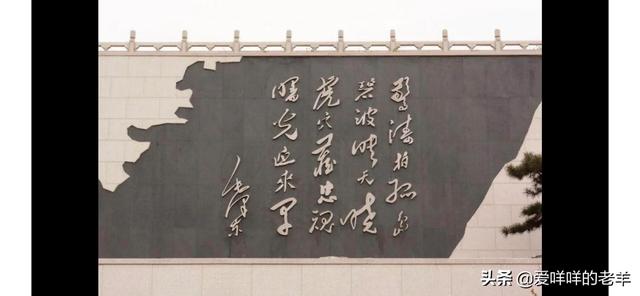 惊涛拍孤岛
碧波映天晓
虎穴藏忠魂
曙光迎来早
毛泽东
头条 @爱咩咩的老羊